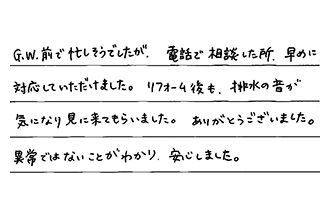 G.W.前で忙しそうでしたが、電話で相談した所、早めに
対応していただけました。リフォーム後も、排水の音が
気になり見に来てもらいました。ありがとうございました。
異常ではないことがわかり、安心しました。